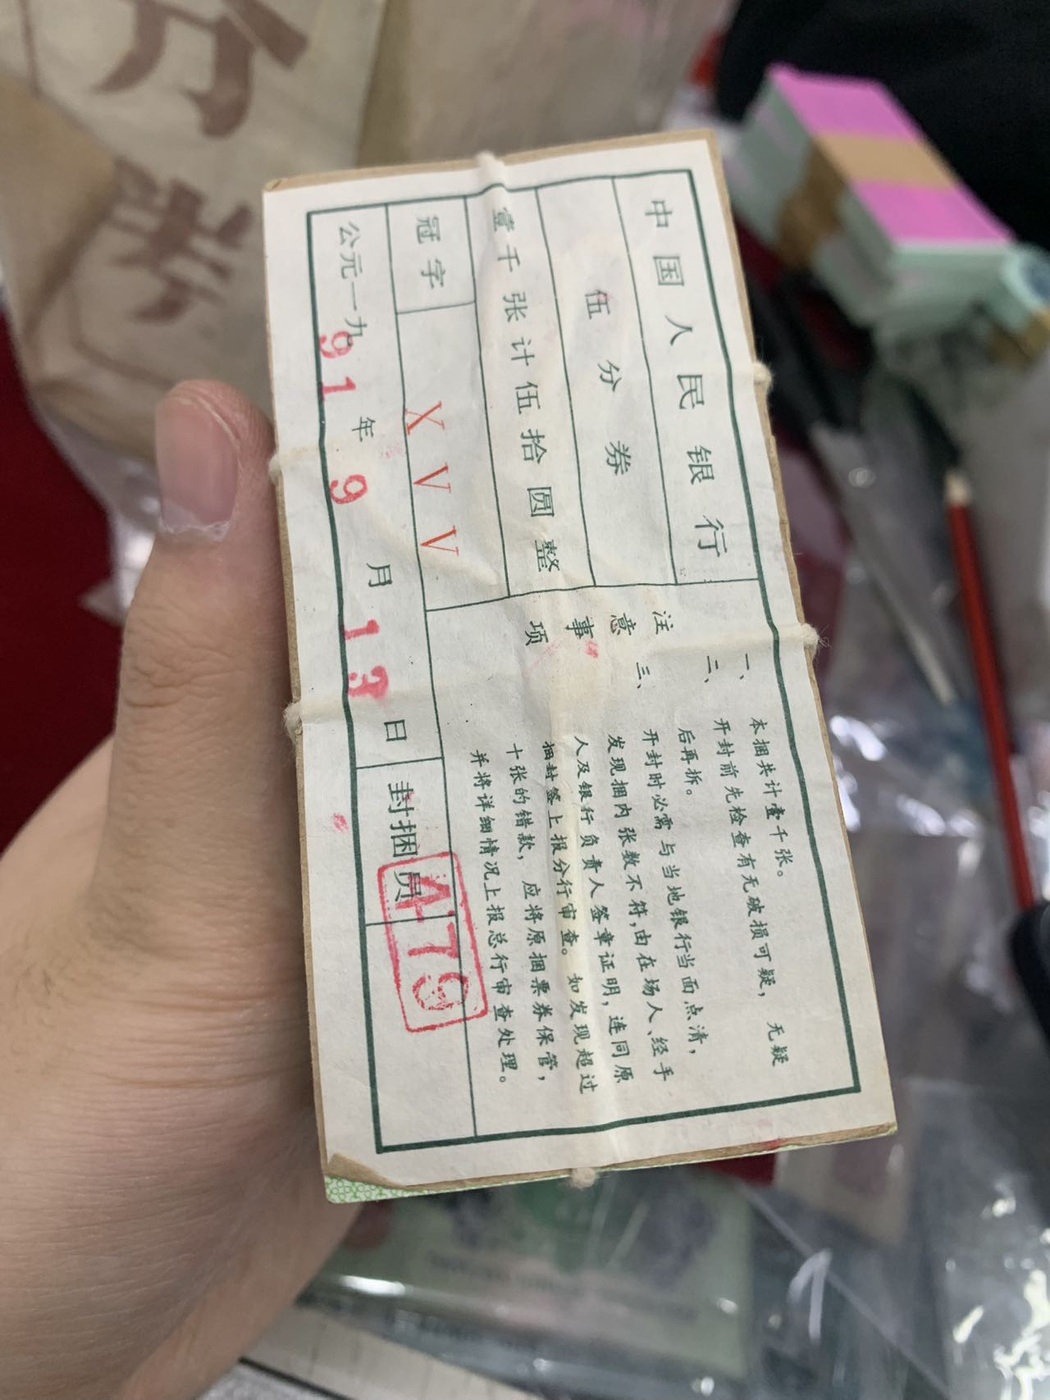 中国人民银行
伍分券
壹千张计伍拾圆整
冠字 X V V
公元一九91年9月13日
封捆员
A179
注意事项
一、本捆共计壹千张。
二、开封前先检查有无破损可疑，无疑
后再拆。
三、开封时必需与当地银行当面点清，
发现捆内张数不符，由在场人、经手
人及银行负责人签章证明，连同原
捆封签上报分行审查。如发现超过
十张的错款，应将原捆票券保管，
并将详细情况上报总行审查处理。
分